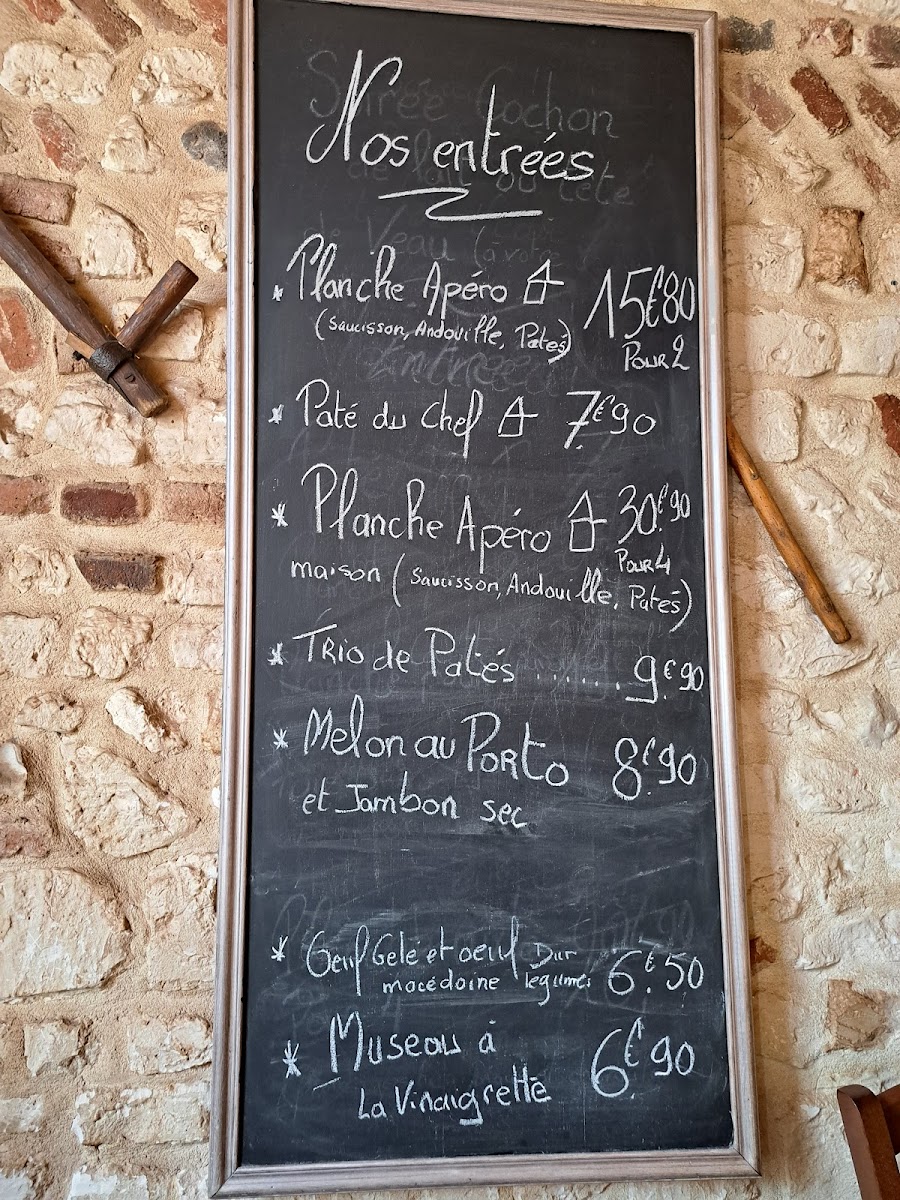 Nos entrées
* Planche Apéro 15€80
(Saucisson, Andouille, Patés) Pour 2
* Paté du Chef 7€90
* Planche Apéro 30€90
Pour 4
maison (Saucisson, Andouille, Patés)
* Trio de Patés ...... 9€90
* Melon au Porto 8€90
et Jambon sec
* Oeuf Gelé et oeuf Dur 6€50
macédoine légumes
* Museau à 6€90
La Vinaigrette